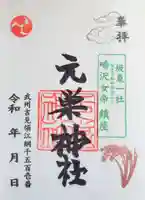 奉拝
坂東一社
鳴沢女帝 鎮座
元巣神社
武州吉見領江綱千五百壱番
令和 年 月 日